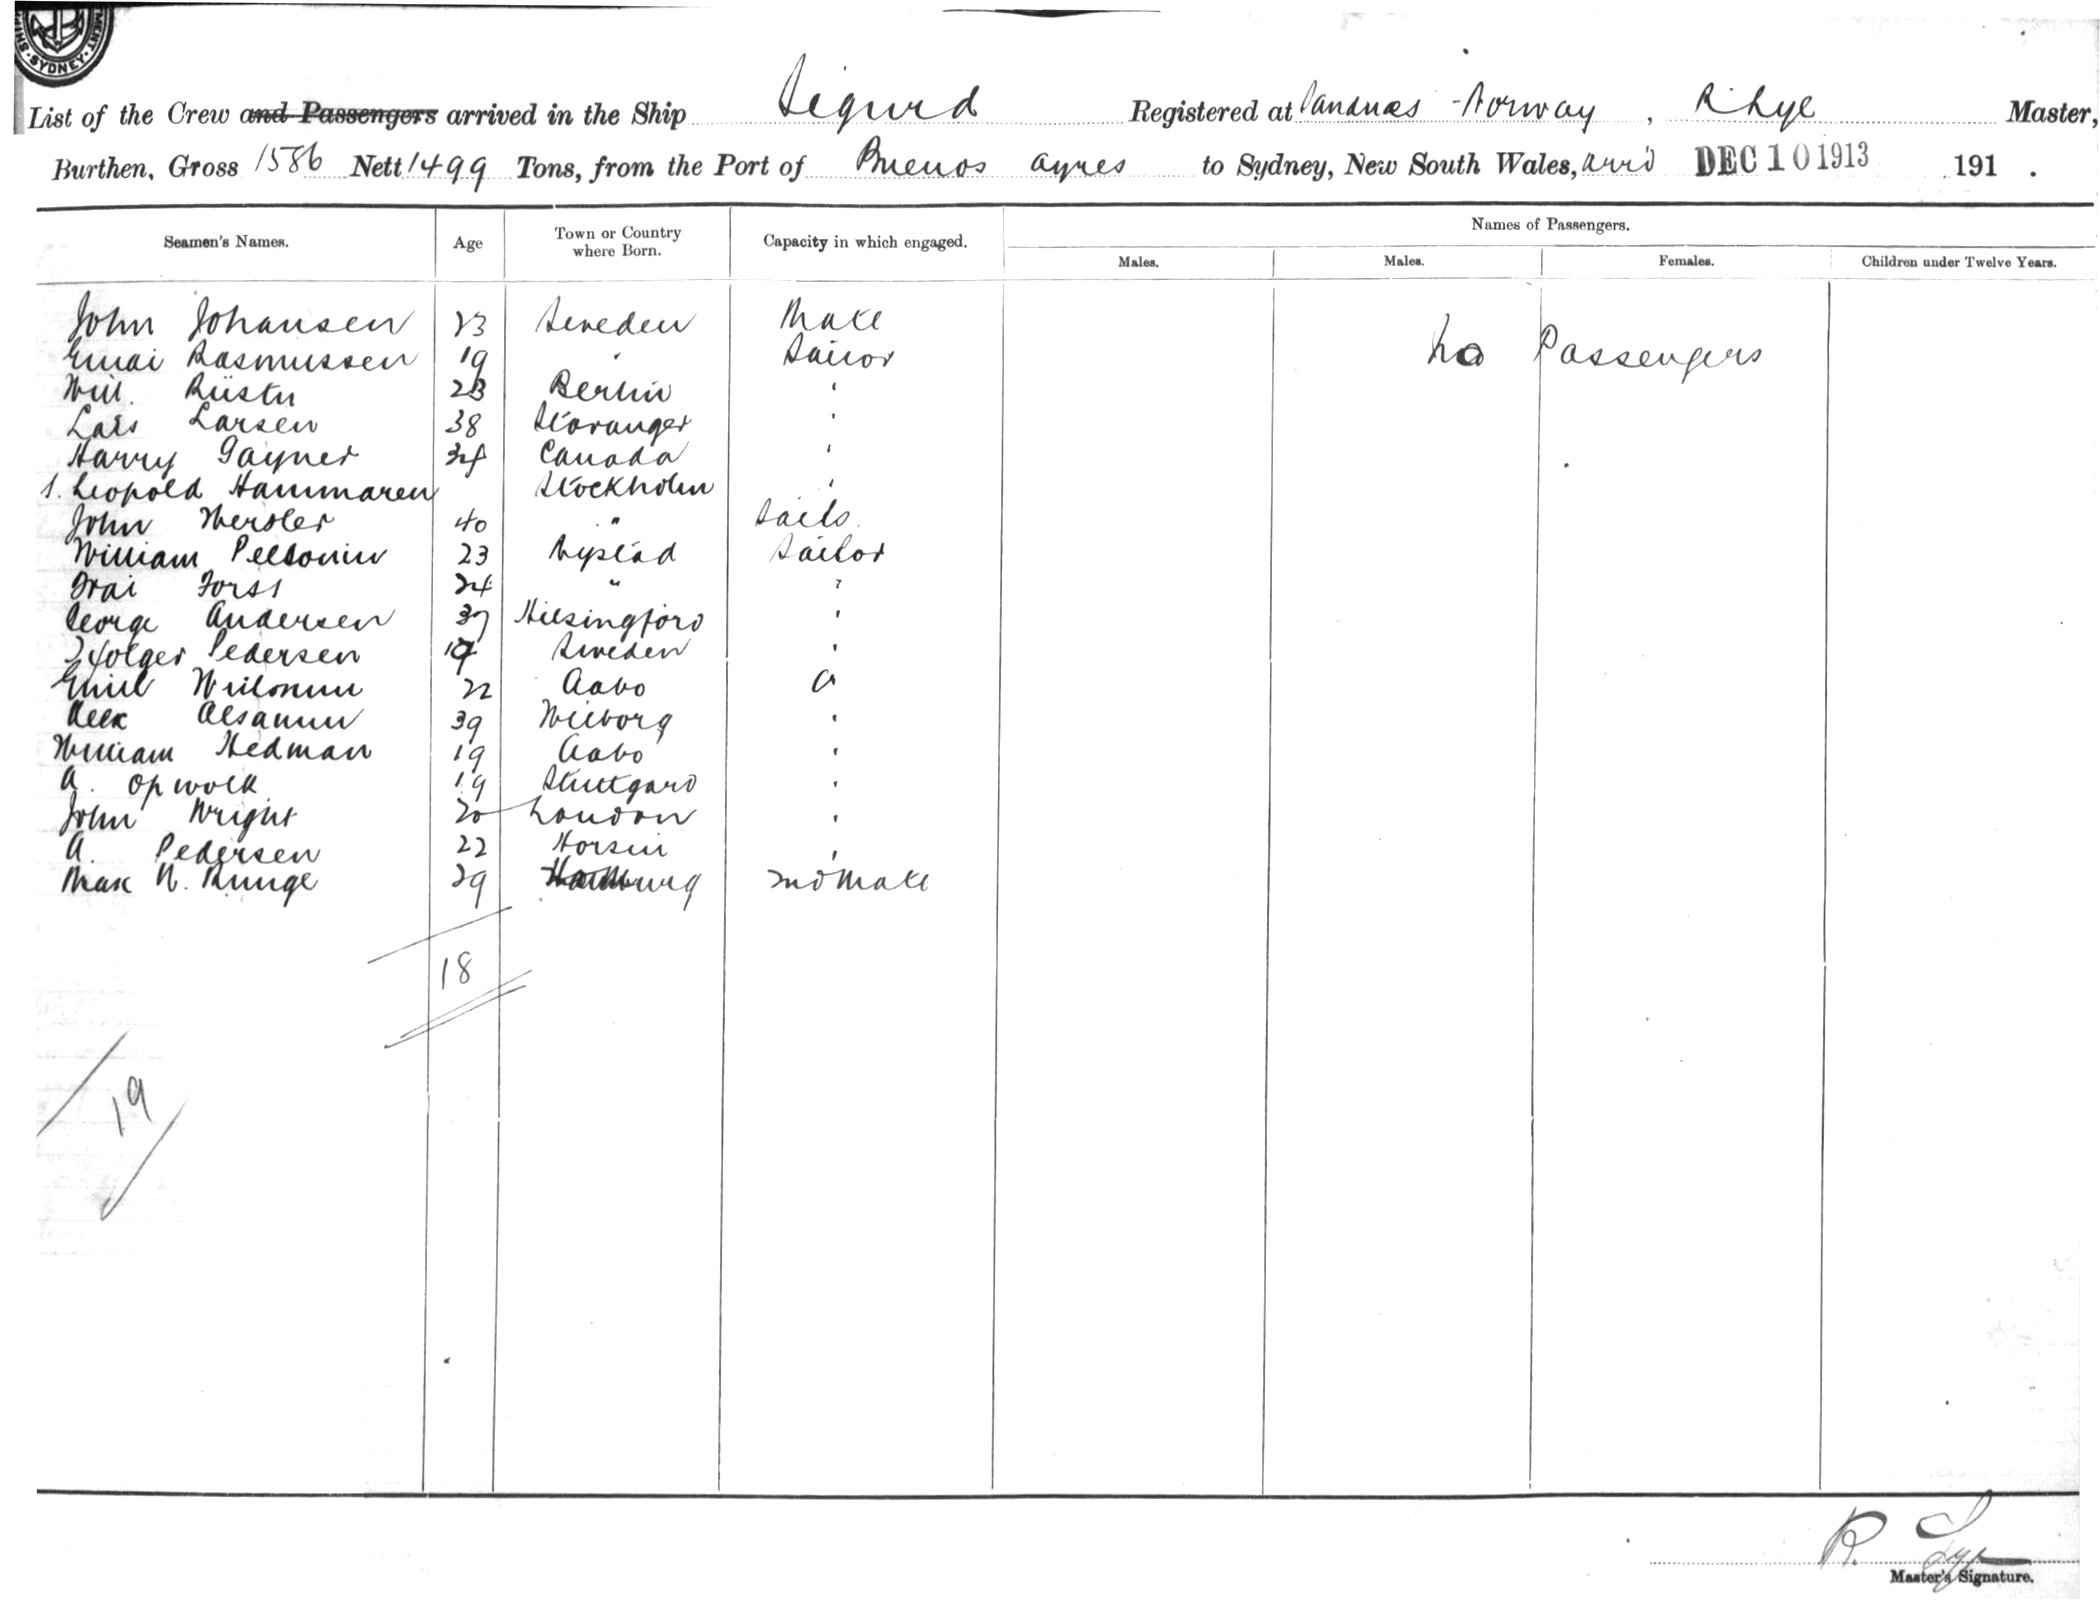 SYDNEY
List of the Crew and Passengers arrived in the Ship Sigurd Registered at Sandnæs - Norway, R Lye Master,
Burthen, Gross 1586 Nett 1499 Tons, from the Port of Buenos Ayres to Sydney, New South Wales, arrd DEC 10 1913 191 .
Names of Passengers.
Seamen's Names. Age Town or Country where Born. Capacity in which engaged. Males. Males. Females. Children under Twelve Years.
John Johansen 23 Sweden Mate
Rasmussen 19 " Sailor
No Passengers
Will. 23 Berlin "
Lars Larsen 38 Stavanger "
Harry Gayner 34 Canada "
S. Leopold Hammaren Stockholm "
John 40 " Sails
William Pellonin 23 Nystad Sailor
Forss 24 " "
George Andersen 37 Hilsingford "
Holger Pedersen 19 Sweden "
Emil 22 Aabo a
Alex 39 Wiborg "
William Hedman 19 Aabo "
A. Opwolk 19 Stuttgard "
John Wright 20 London "
A. Pedersen 22 Horsin "
Max W. Runge 29 Hamburg 2nd Mate
18
19
R. Lye
Master's Signature.